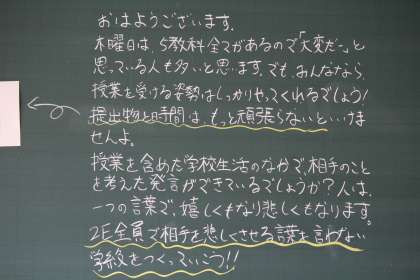 おはようございます。
木曜日は、5教科全てがあるので「大変だ~」と
思っている人も多いと思います。でも、みんななら
授業を受ける姿勢はしっかりやってくれるでしょう!
提出物と時間は、もっと頑張らないといけま
せんよ。
授業を含めた学校生活のなかで、相手のこと
を考えた発言ができているでしょうか?人は、
一つの言葉で、嬉しくもなり悲しくもなります。
2E全員で相手を悲しくさせる言葉を言わない
学級をつくっていこう!!